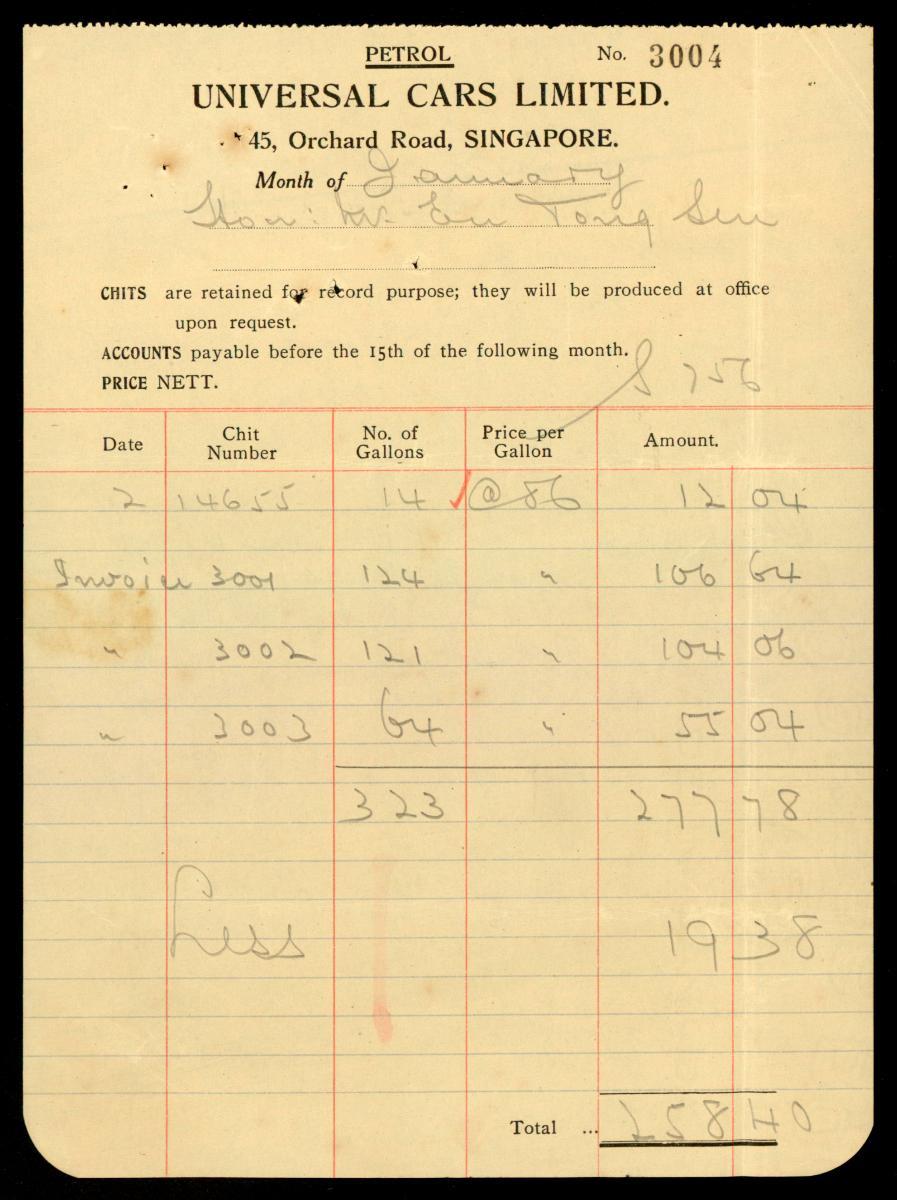 PETROL No. 3004
UNIVERSAL CARS LIMITED.
45, Orchard Road, SINGAPORE.
Month of January
Hon: Mr. Eu Tong Sen
CHITS are retained for record purpose; they will be produced at office
upon request.
ACCOUNTS payable before the 15th of the following month.
PRICE NETT.
S 756
Date Chit Number No. of Gallons Price per Gallon Amount.
2 14655 14 @ 86 12 04
Invoice 3001 124 " 106 64
" 3002 121 " 104 06
" 3003 64 " 55 04
323 277 78
Less 19 38
Total ... 258 40